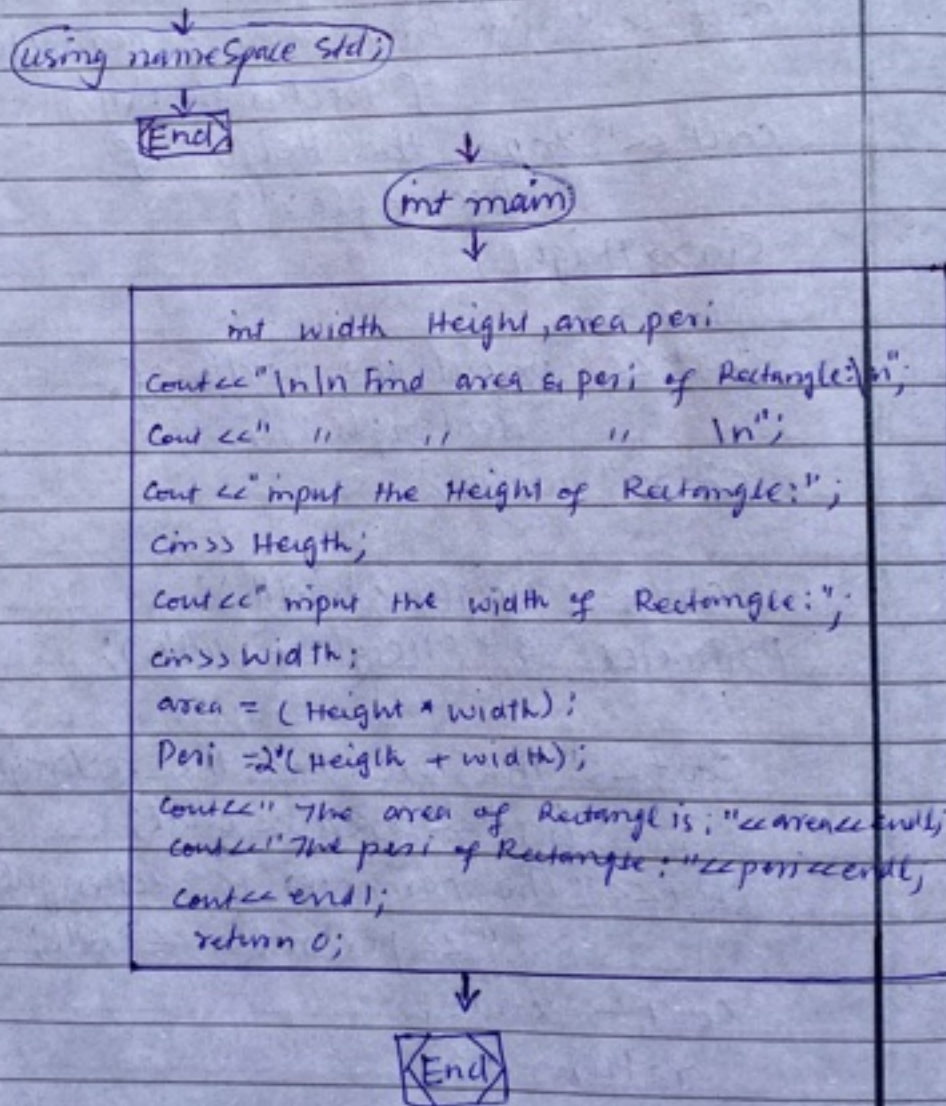 using namespace std;
End
int main
int width Height, area, peri
cout<<"\n\n Find area & peri of Rectangle:\n";
Cout <<" " " " \n";
Cout <<"input the Height of Rectangle:";
cin>> Heigth;
cout<<" input the width of Rectangle:";
cin>> width;
area = (Height * width);
Peri =2*(Heigth + width);
cout<<" The area of Rectangl is; "<<area<<endl,
cout<<" The peri of Rectangle: "<<peri<<endl,
cout<< endl;
return 0;
End